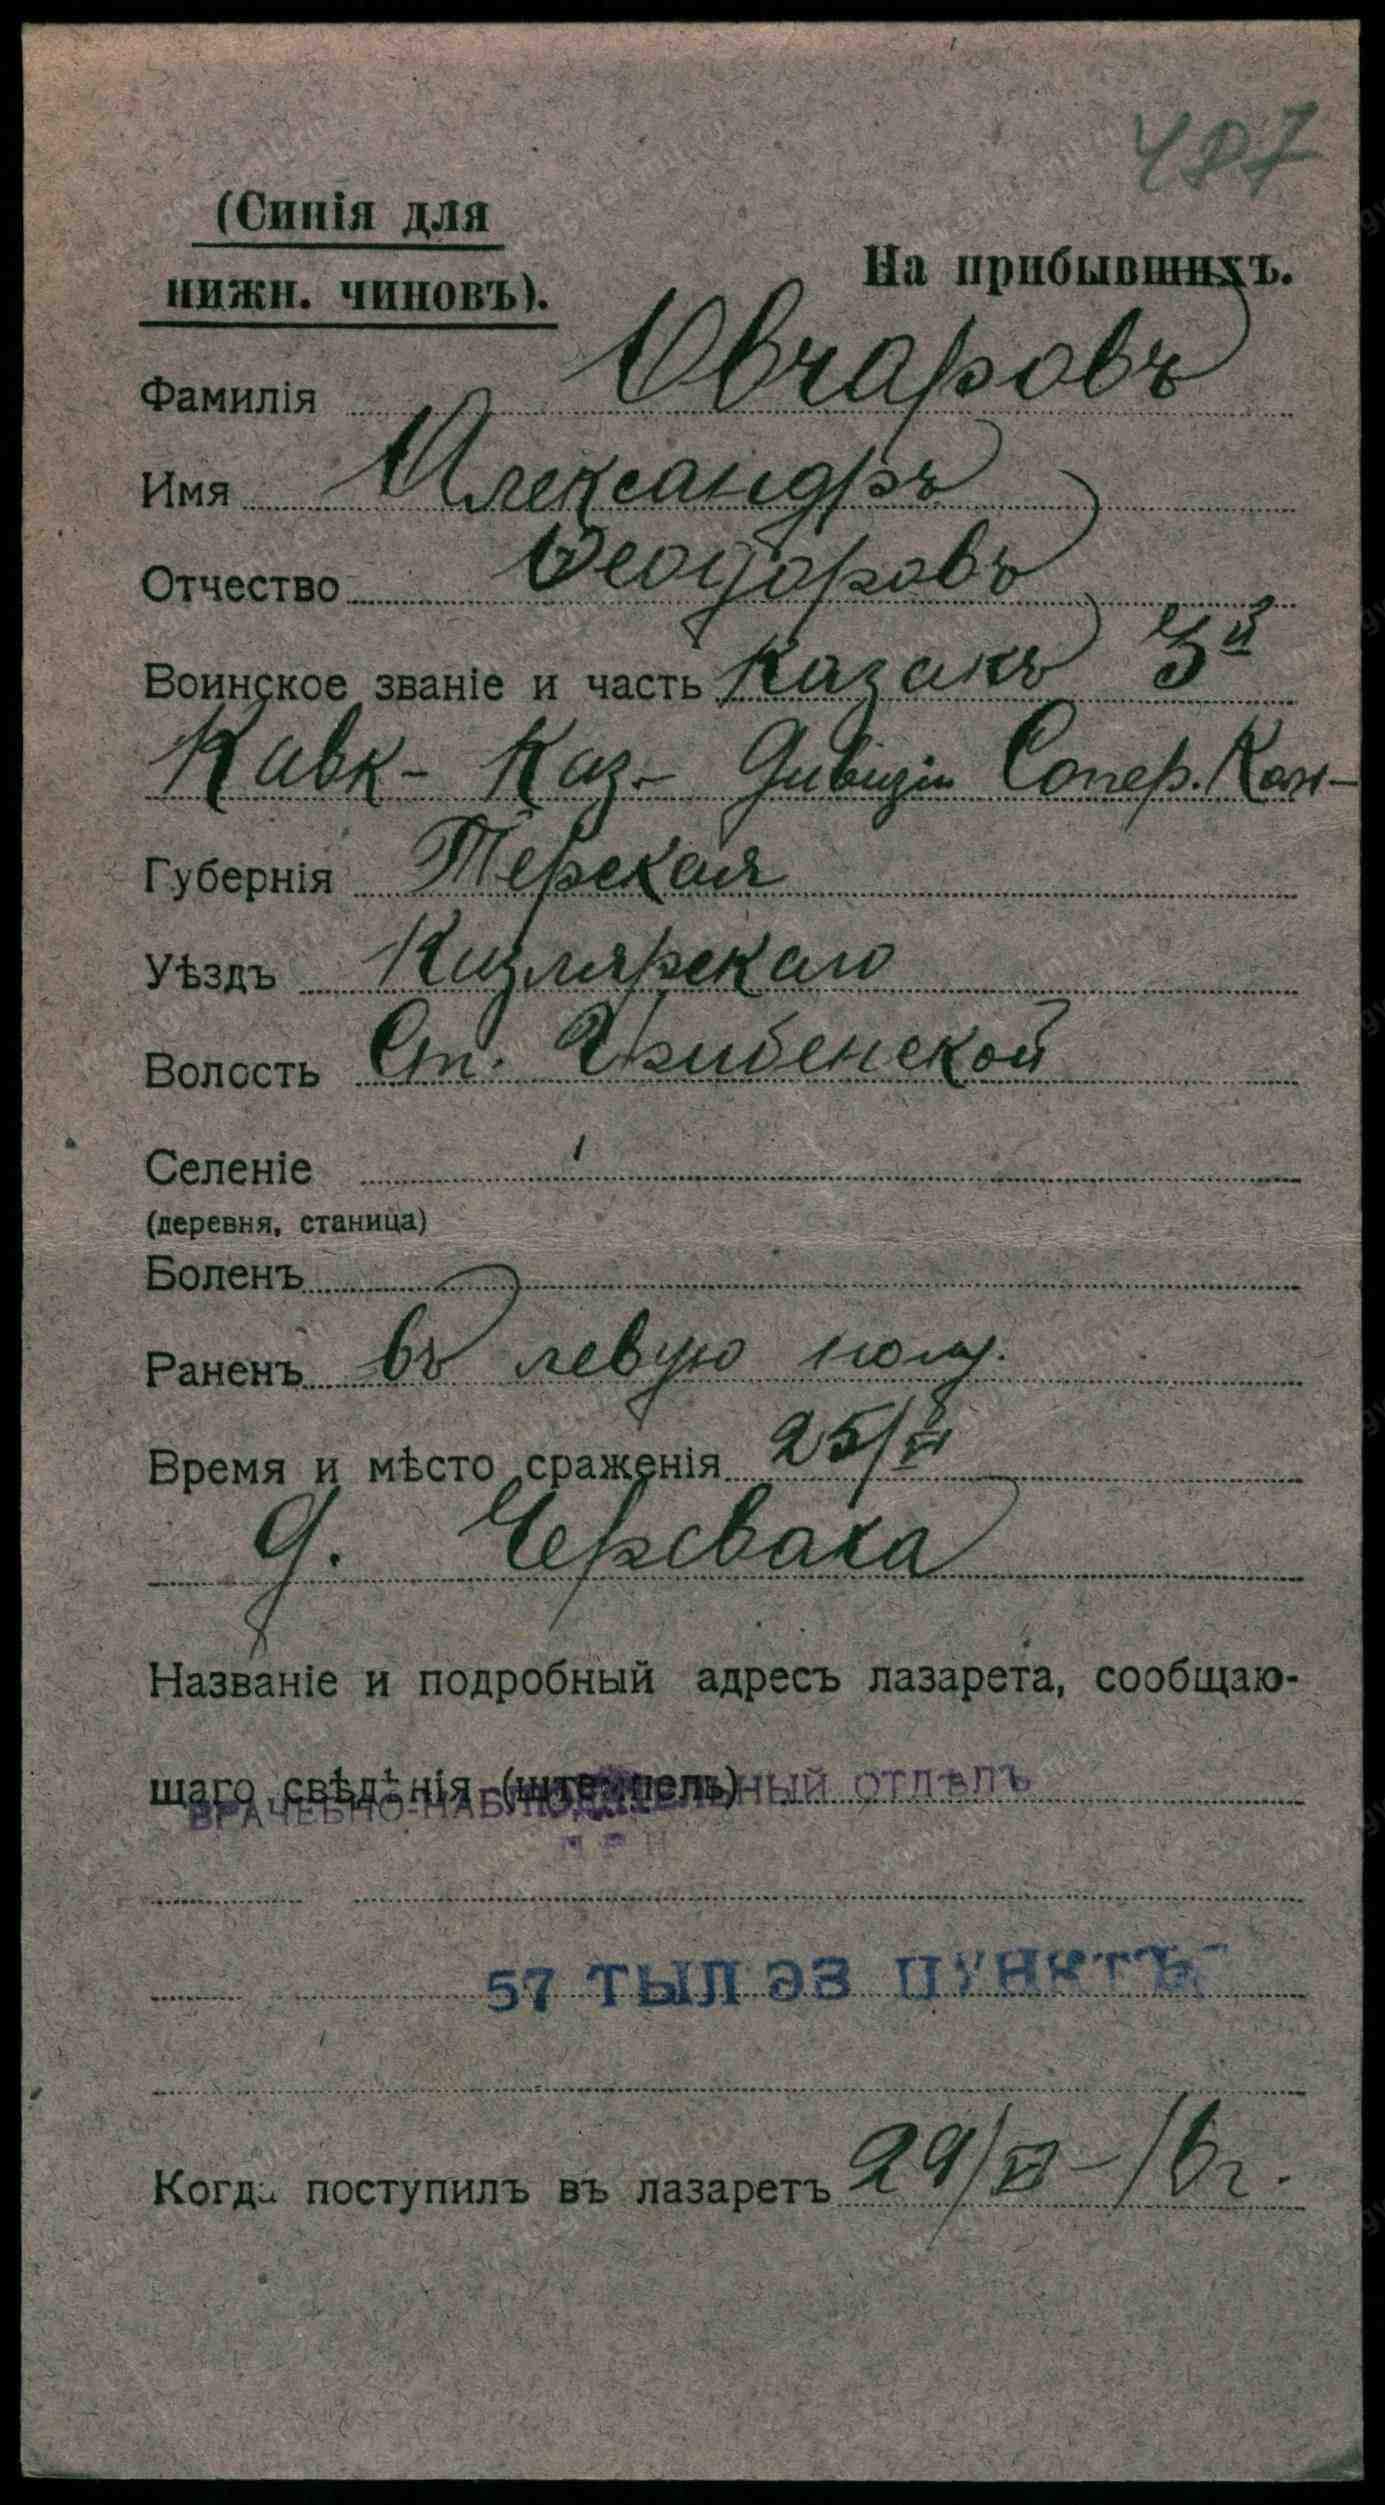 487
(Синія для
нижн. чиновъ).
На прибывшихъ.
Фамилія Овчаровъ
Имя Александръ
Отчество Ѳеодоровъ
Воинское званіе и часть Казакъ 3й
Кавк- Каз- Дивизіи Сапер. Кон-
Губернія Терская
Уѣздъ Кизлярскаго
Волость Ст.
Селеніе
(деревня, станица)
Боленъ
Раненъ въ левую
Время и мѣсто сраженія 25/
д.
Названіе и подробный адресъ лазарета, сообщаю-
щаго свѣдѣнія (штемпель)
ВРАЧЕБНО-НАБЛЮДАТЕЛЬНЫЙ ОТДѢЛЪ
57 ТЫЛ ЭВ ПУНКТЪ
Когда поступилъ въ лазаретъ 29/VI-16г.